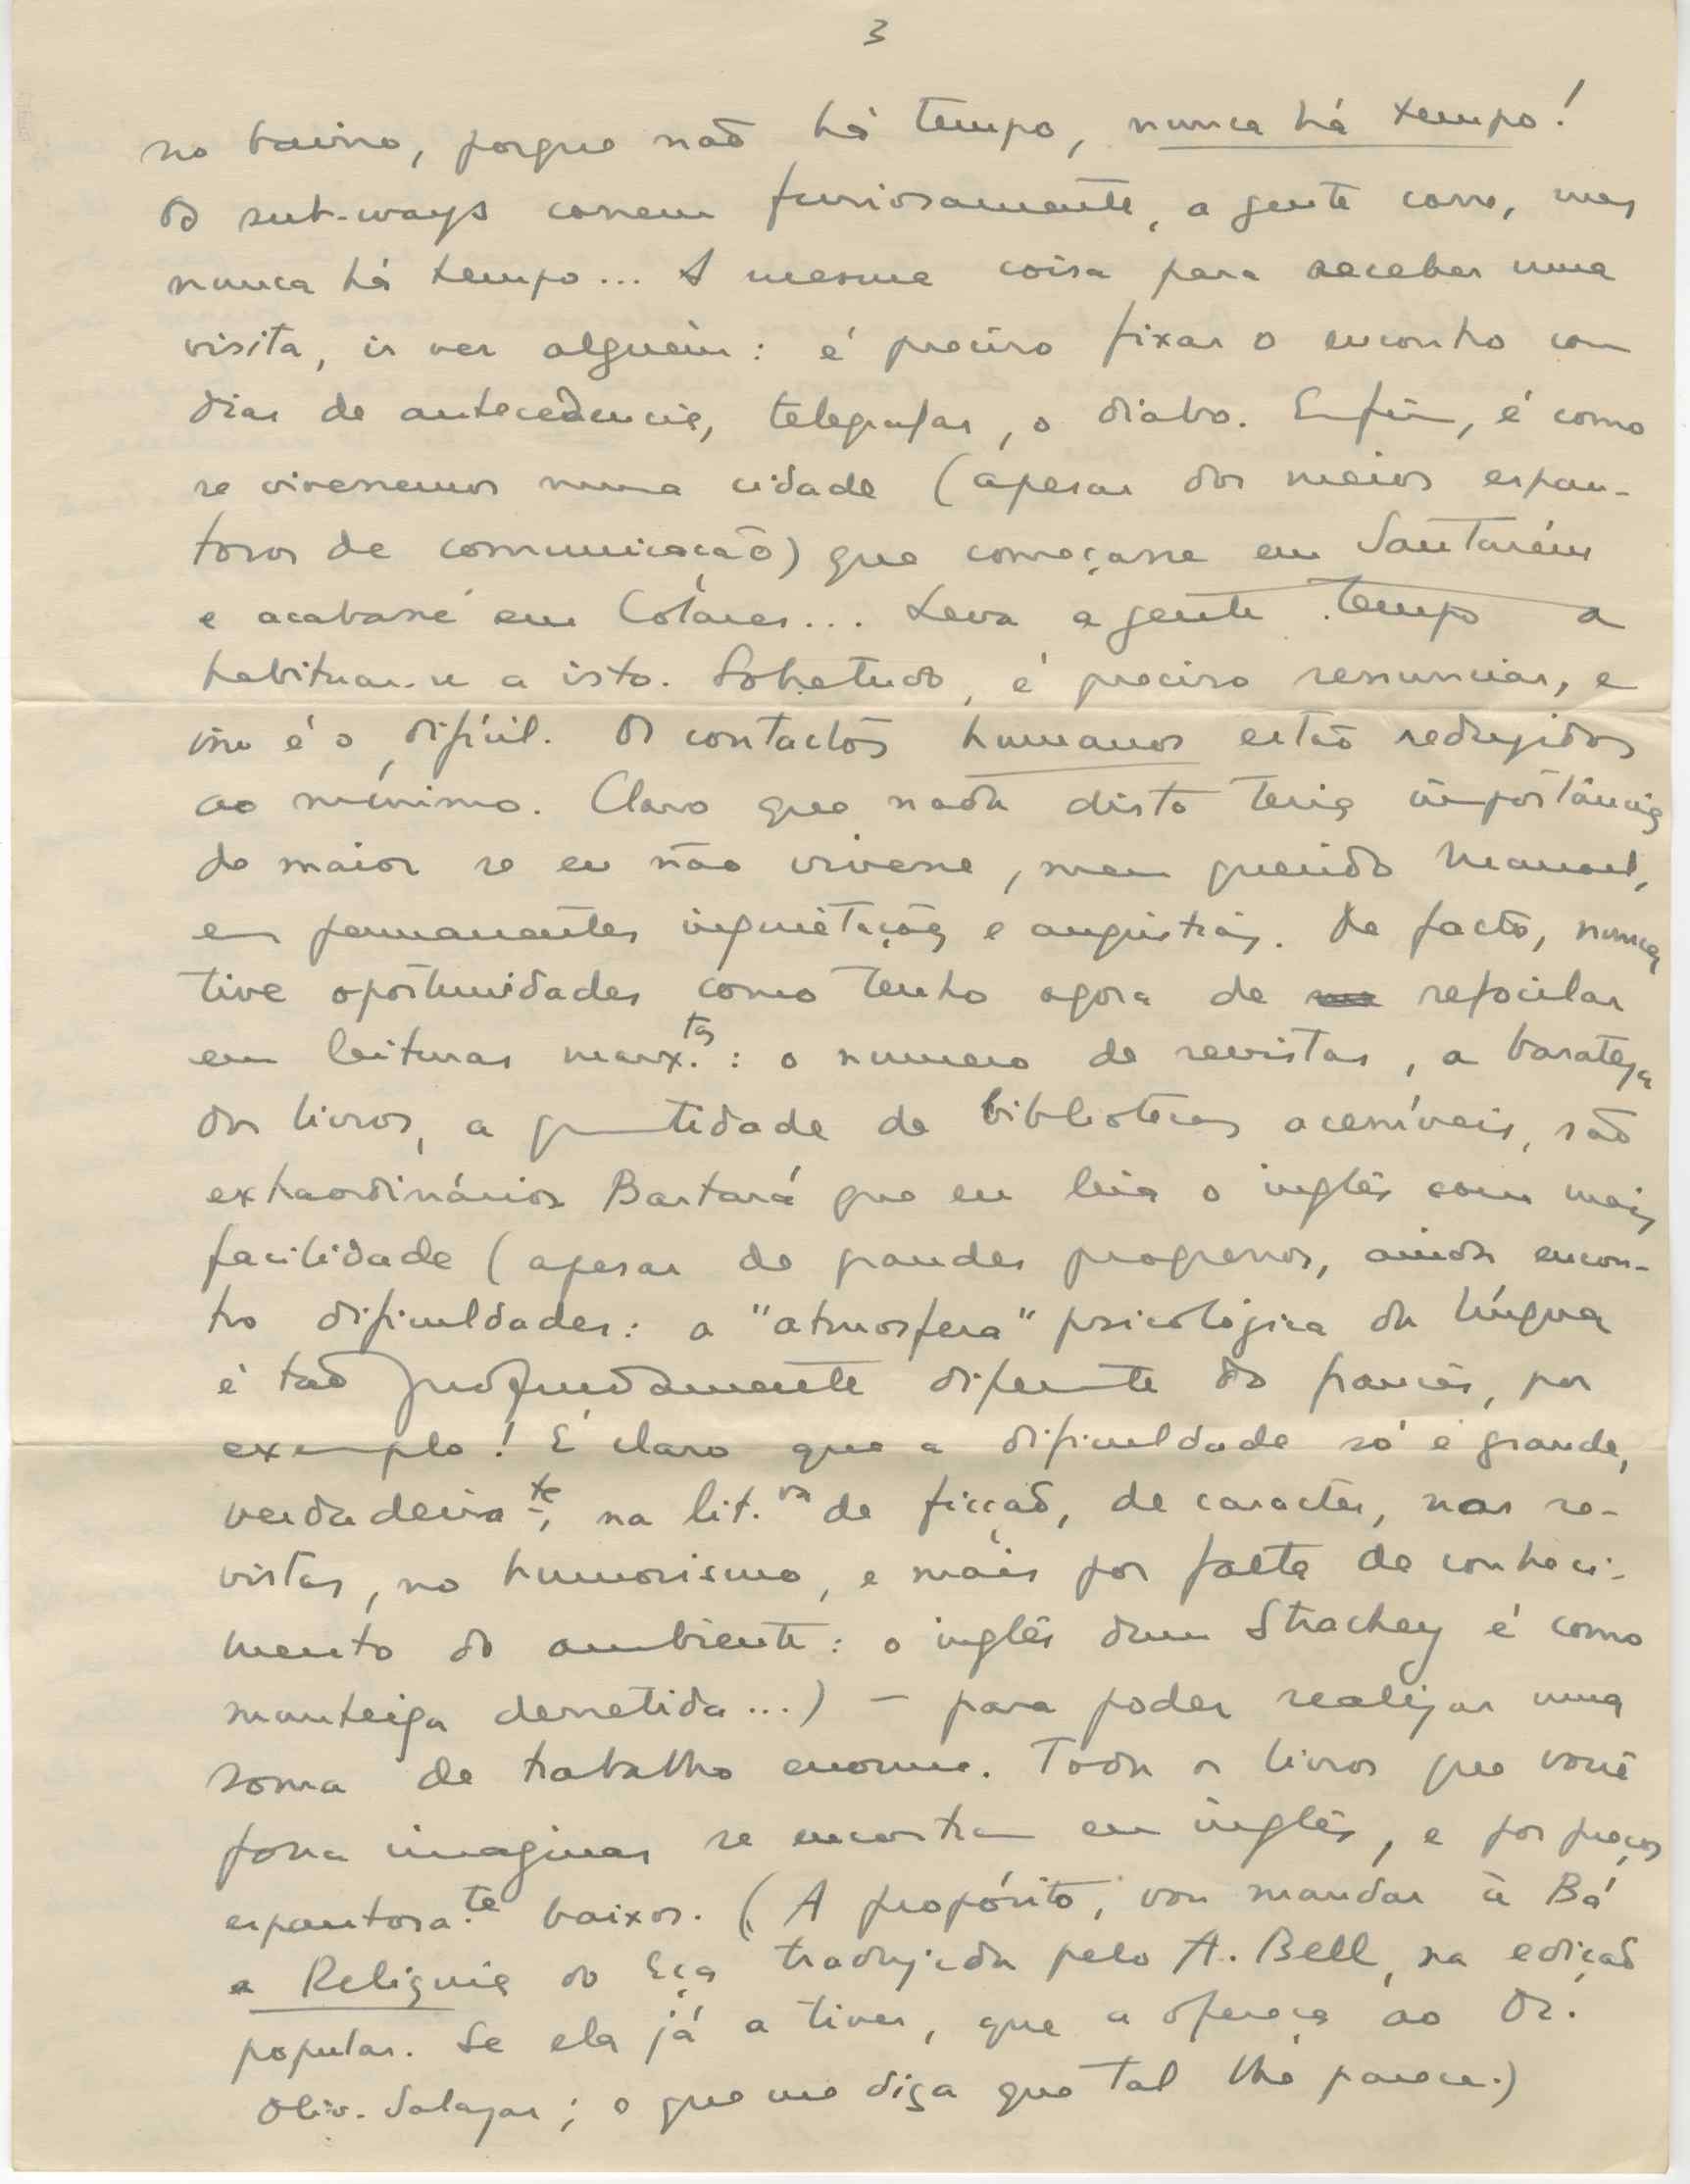 3
no bairro, porque não há tempo, nunca há tempo!
Os sub-ways correm furiosamente, a gente corre, mas
nunca há tempo... A mesma coisa para receber uma
visita, ir ver alguém: é preciso fixar o encontro com
dias de antecedencia, telegrafar, o diabo. Enfim, é como
se vivessemos numa cidade (apesar dos meios espan-
tosos de comunicação) que começasse em Santarém
e acabasse em Colares... Leva a gente tempo a
habituar-se a isto. Sobretudo, é preciso renunciar, e
isso é o difícil. Os contactos humanos estão reduzidos
ao mínimo. Claro que nada disto teria importância
de maior se eu não vivesse, meu querido Manuel,
em permanentes inquietações e angústias. De facto, nunca
tive oportunidades como tenho agora de refocilar
em leituras marx.tas: o numero de revistas, a barateza
dos livros, a quantidade de bibliotecas acessíveis, são
extraordinários. Bastará que eu leia o inglês com mais
facilidade (apesar de grandes progressos, ainda encon-
tro dificuldades: a "atmosfera" psicológica da língua
é tão profundamente diferente do francês, por
exemplo! É claro que a dificuldade só é grande,
verdadeira.te, na lit.ra de ficção, de caracter, nas re-
vistas, no humorismo, e mais por falta de conheci-
mento do ambiente: o inglês dum Strachey é como
manteiga derretida...) – para poder realizar uma
soma de trabalho enorme. Todos os livros que você
possa imaginar se encontram em inglês, e por preços
espantosa.te baixos. (A propósito, vou mandar à Bá
a Reliquia do Eça traduzida pelo A. Bell, na edição
popular. Se ela já a tiver, que a ofereça ao Dr.
Oliv. Salazar; o que me diga que tal lhe parece.)